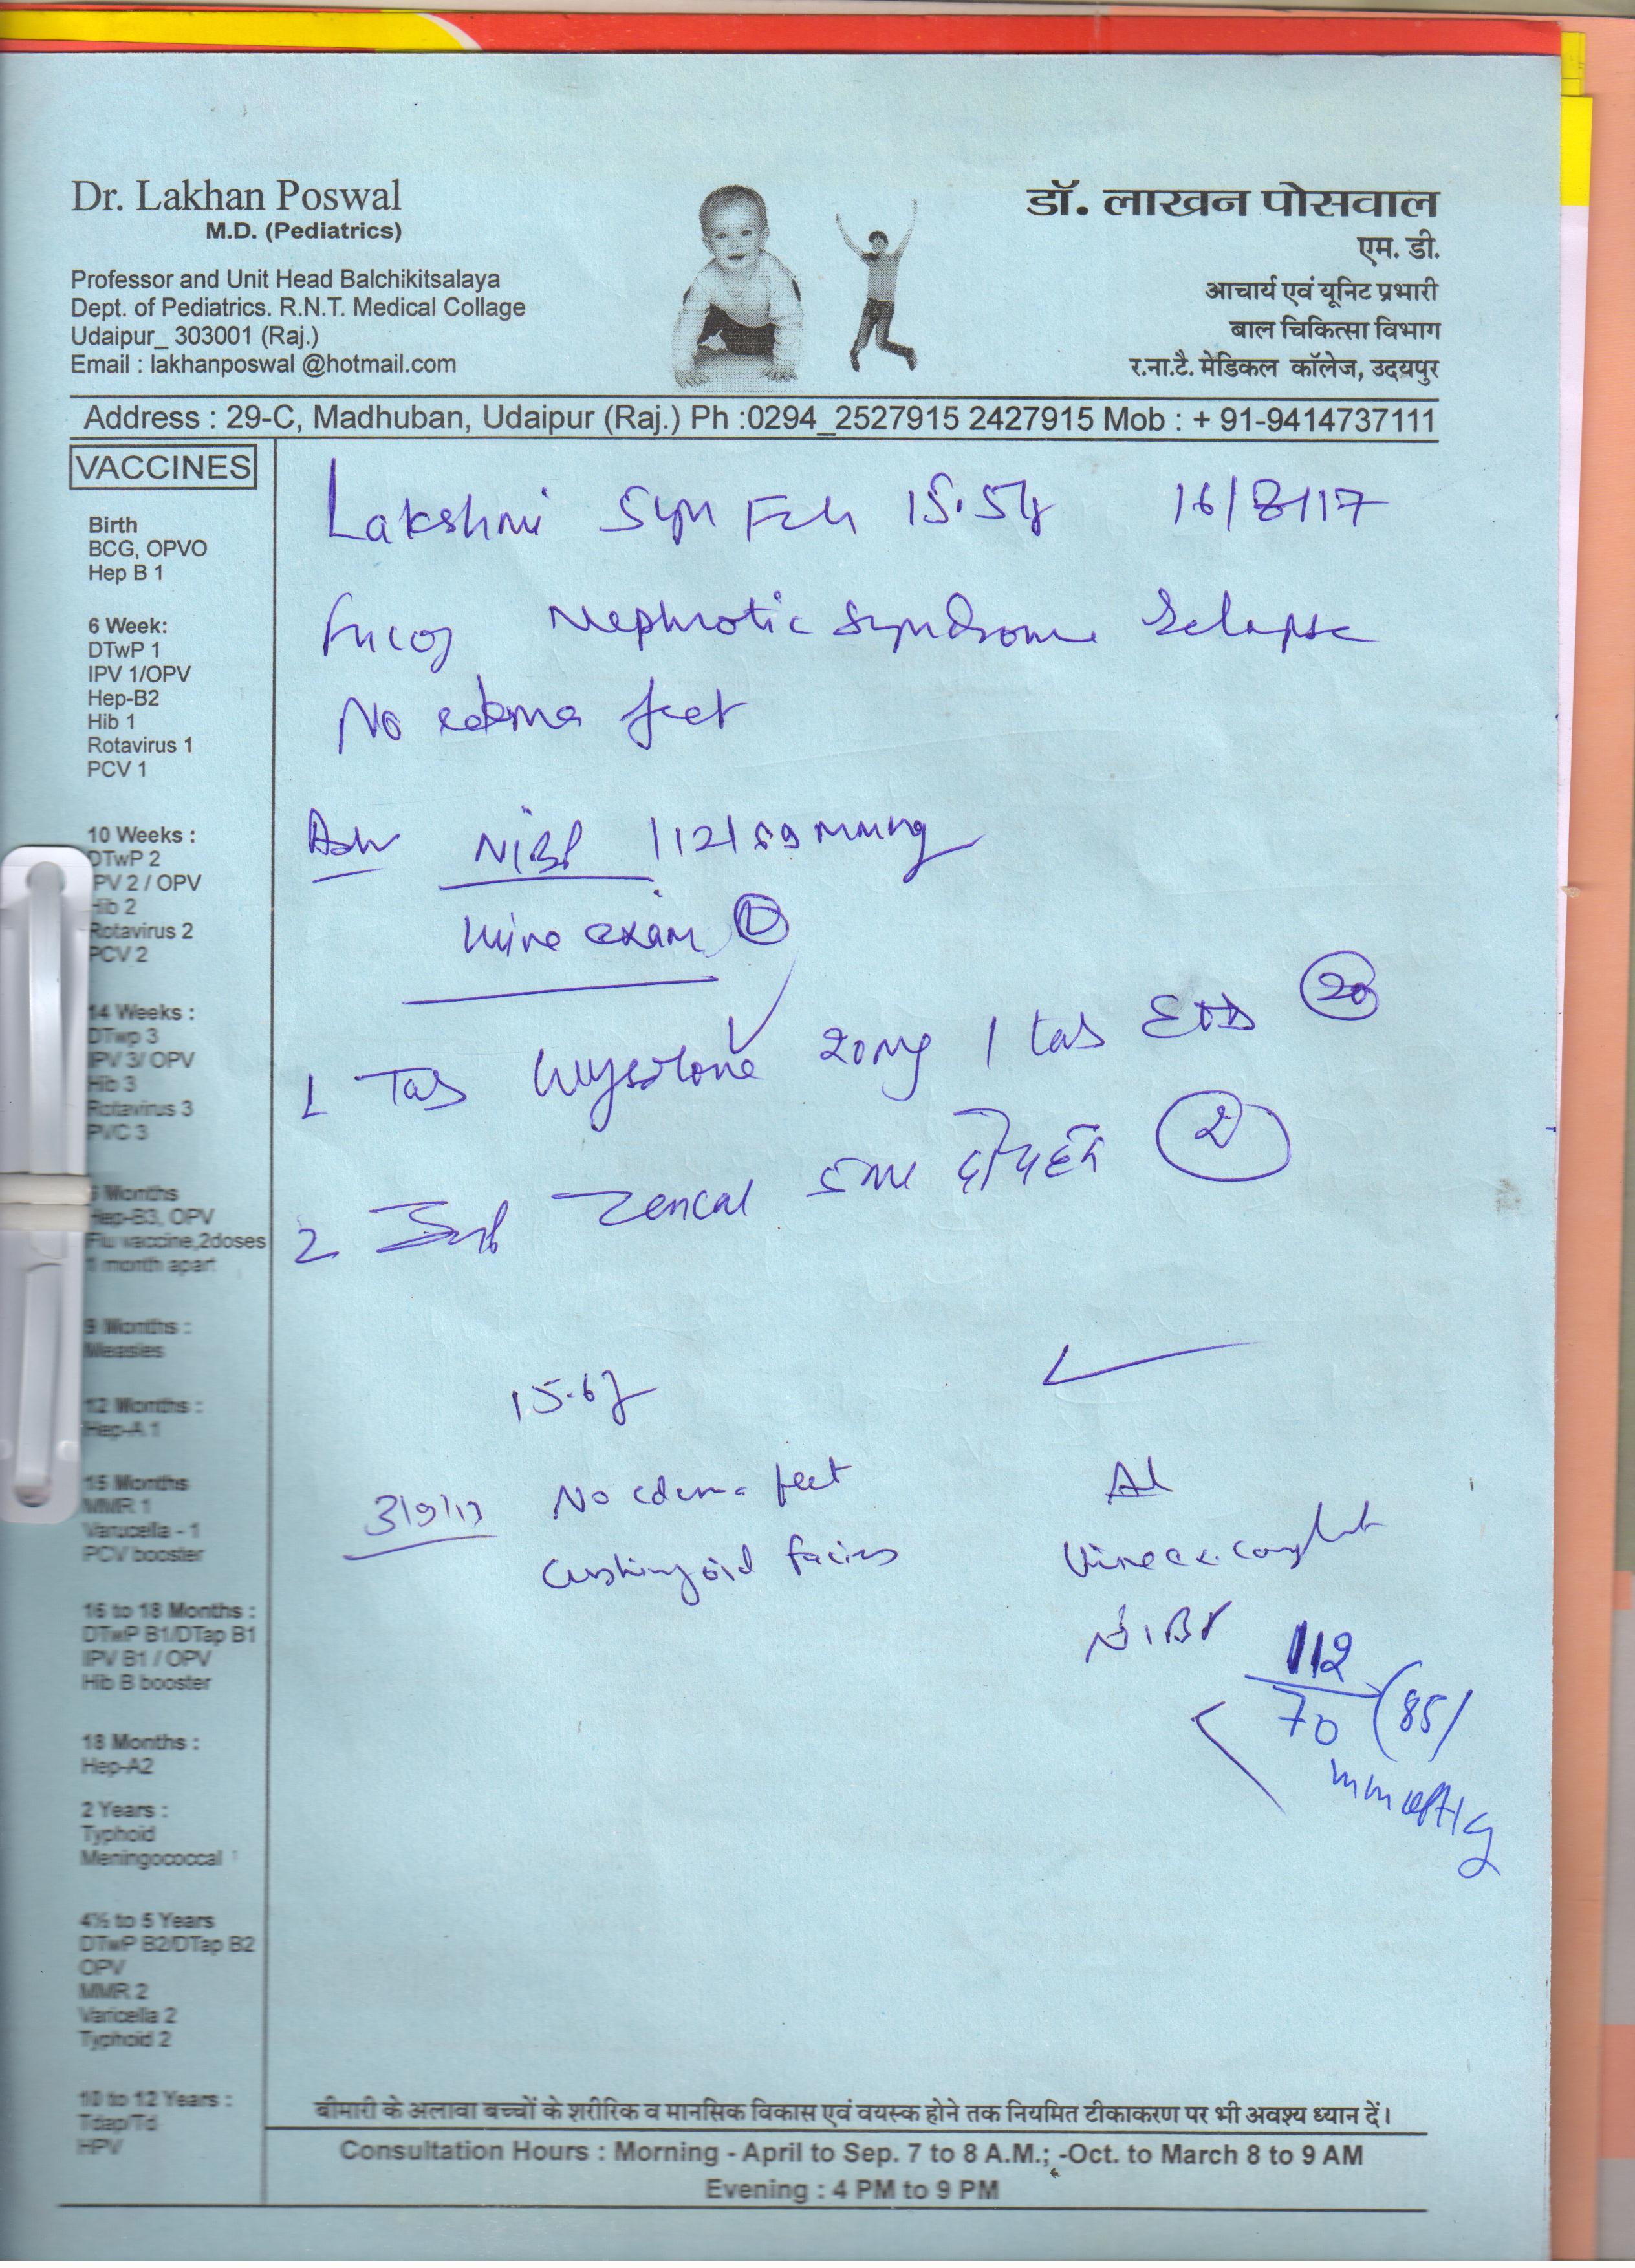 Dr. Lakhan Poswal
M.D. (Pediatrics)
Professor and Unit Head Balchikitsalaya
Dept. of Pediatrics. R.N.T. Medical Collage
Udaipur_ 303001 (Raj.)
Email : lakhanposwal @hotmail.com
डॉ. लाखन पोसवाल
एम. डी.
आचार्य एवं यूनिट प्रभारी
बाल चिकित्सा विभाग
र.ना.टै. मेडिकल कॉलेज, उदयपुर
Address : 29-C, Madhuban, Udaipur (Raj.) Ph :0294_2527915 2427915 Mob : + 91-9414737111
VACCINES
Birth
BCG, OPVO
Hep B 1
6 Week:
DTwP 1
IPV 1/OPV
Hep-B2
Hib 1
Rotavirus 1
PCV 1
10 Weeks :
DTwP 2
PV 2 / OPV
Hib 2
Rotavirus 2
PCV 2
14 Weeks :
DTwp 3
IPV 3/ OPV
Hib 3
Rotavirus 3
PVC 3
Months
Hep-B3, OPV
Flu vaccine,2doses
1 month apart
9 Months :
Measles
12 Months :
Hep-A 1
15 Months
MMR 1
Varucella - 1
PCV booster
16 to 18 Months :
DTwP B1/DTap B1
IPV B1 / OPV
Hib B booster
18 Months :
Hep-A2
2 Years :
Typhoid
Meningococcal
4½ to 5 Years
DTwP B2/DTap B2
OPV
MMR 2
Varicella 2
Typhoid 2
10 to 12 Years :
Tdap/Td
HPV
Lakshmi 5yn Fch 16/8/17
Nephrotic Syndrome Relapse
No edema feet
Adv NIBP 112/89 mmHg
Urine exam
1 Tab Wysolone 20mg 1 tab 20
2 Syp Zencal 5ml दोपहर 2
15.6
3/9/17 No edema feet
Cushingoid facies
Ad
Urine ex. complete
NIBP 112/70 (85)
mm of Hg
बीमारी के अलावा बच्चों के शरीरिक व मानसिक विकास एवं वयस्क होने तक नियमित टीकाकरण पर भी अवश्य ध्यान दें।
Consultation Hours : Morning - April to Sep. 7 to 8 A.M.; -Oct. to March 8 to 9 AM
Evening : 4 PM to 9 PM